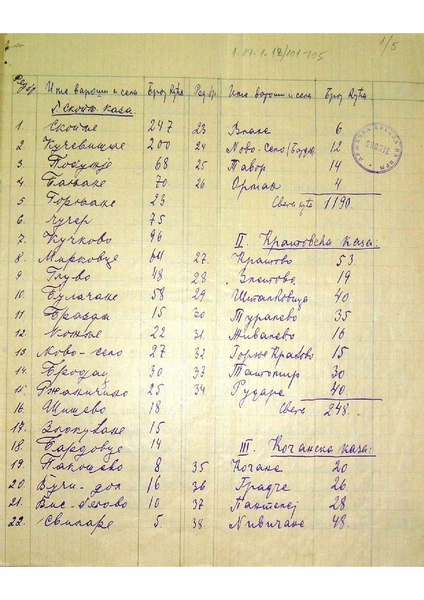 1/5
Ред.бр. Име вароши и села Број кућа Ред.бр. Име вароши и села Број кућа
I Скопљ. каза.
1. Скопље 247
2. Кучевиште 200
3. Побужје 68
4. Бањане 70
5. Горњане 23
6. Чучер 75
7. Кучково 96
8. Мирковце
9. Глуво 48
10. Булачане 58
11. Бразда 15
12. Кожље 22
13. Ново-село 27
14. Бродац 30
15. Ржаничино 25
16. Шишево 18
17. Злокућане 15
18. Бардовце 14
19. Паношево 8
20. Бучи-дол 16
21. 10
22. Свиларе 5
23 Влае 6
24 Ново-село 12
25 Тавор 14
26 Орман 4
Свега кућа 1190.
II. Кратовска каза:
27 Кратово 53
28 Злетово 19
29 Шталковица 40
30 Туралево 35
31 Живалево 16
32 Горње Кратово 15
33 Талашмир 30
34 Рударе 40
Свега 248.
III. Кочанска каза:
35 Кочане 20
36 Градче 26
37 Пантелеј 28
38 Нивичане 48.